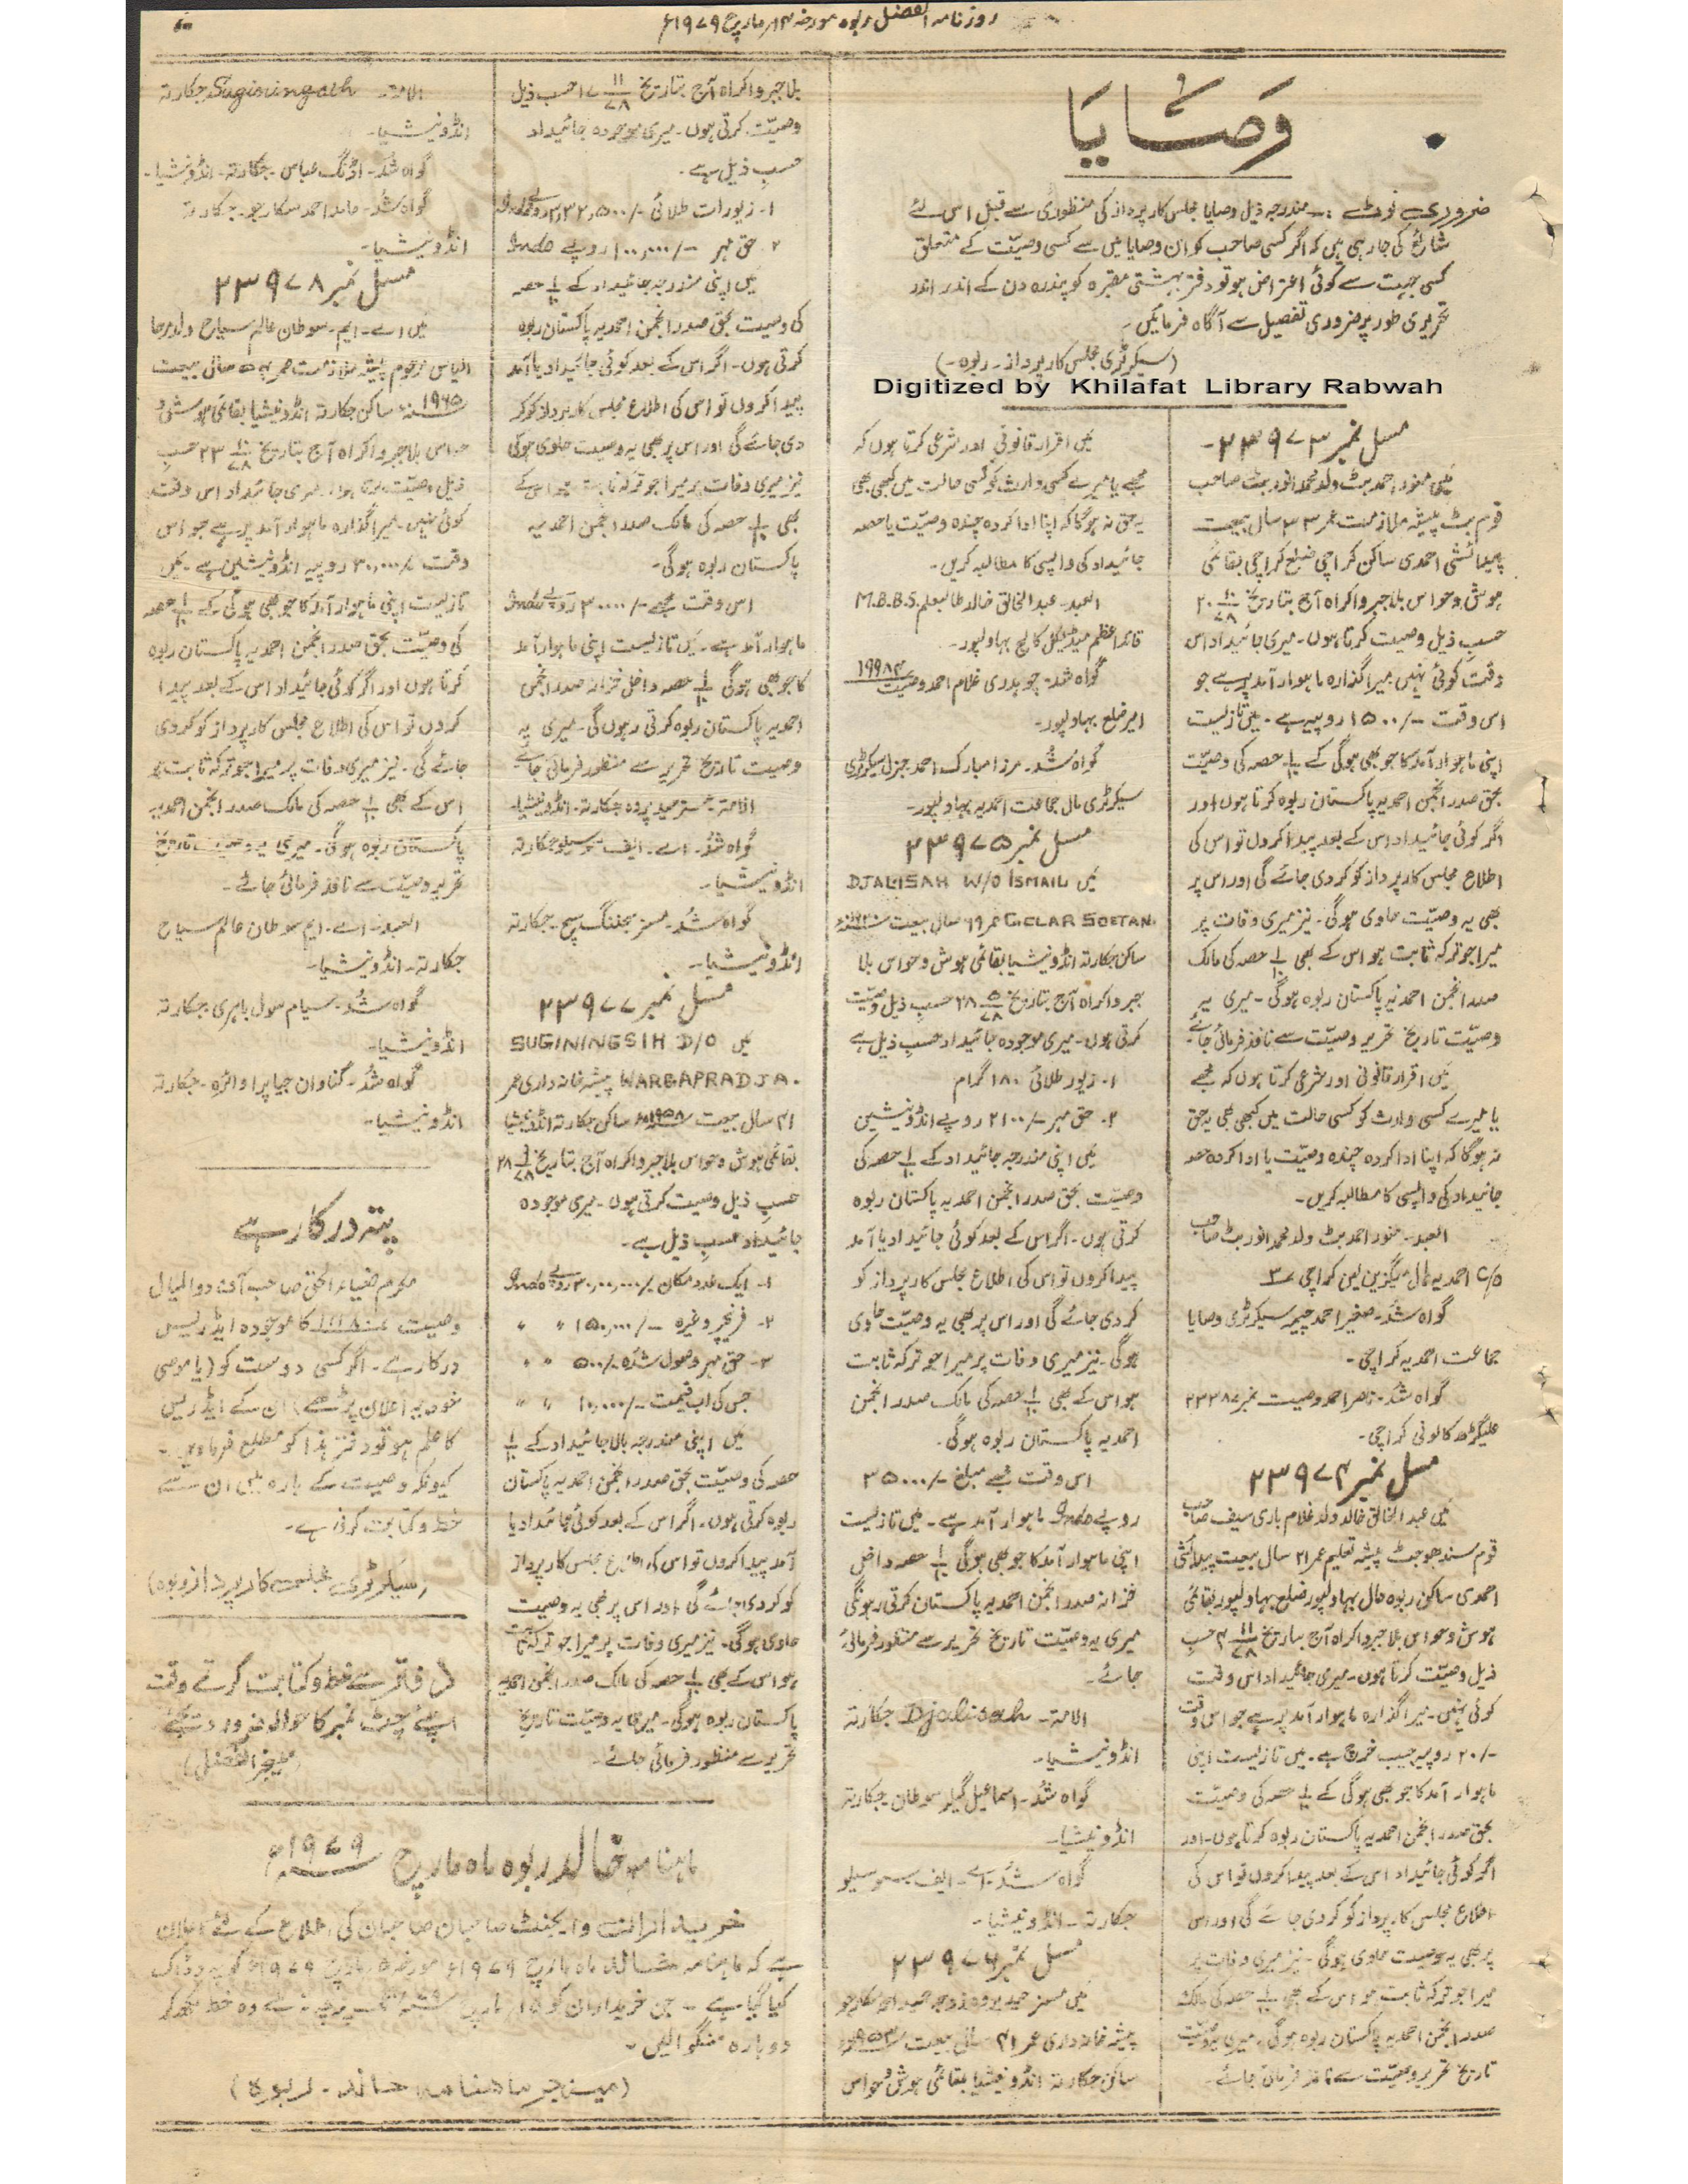 روزنامہ الفضل ربوہ مورخہ ۱۴ مارچ ۱۹۷۹ء
وَصَایَا
ضروری نوٹ :۔ مندرجہ ذیل وصایا مجلس کارپرداز کی منظوری سے قبل اس لئے
شائع کی جا رہی ہیں کہ اگر کسی صاحب کو ان وصایا میں سے کسی وصیت کے متعلق
کسی جہت سے کوئی اعتراض ہو تو دفتر بہشتی مقبرہ کو پندرہ دن کے اندر اندر
تحریری طور پر ضروری تفصیل سے آگاہ فرمائیں۔
(سیکرٹری مجلس کارپرداز۔ ربوہ۔)
Digitized by Khilafat Library Rabwah
مسل نمبر ۲۳۹۷۳۔
میں منور احمد بٹ ولد محمد انور بٹ صاحب
قوم بٹ پیشہ ملازمت عمر ۳۳ سال بیعت
پیدائشی احمدی ساکن کراچی ضلع کراچی بقائمی
ہوش و حواس بلا جبر و اکراہ آج بتاریخ
حسب ذیل وصیت کرتا ہوں۔ میری جائیداد اس
وقت کوئی نہیں میرا گذارہ ماہوار آمد پر ہے جو
اس وقت ۔/۱۵۰۰ روپیہ ہے۔ میں تازیست
اپنی ماہوار آمد کا جو بھی ہوگی کے ۱/۱۰ حصہ کی وصیت
بحق صدر انجمن احمدیہ پاکستان ربوہ کرتا ہوں اور
اگر کوئی جائیداد اس کے بعد پیدا کروں تو اس کی
اطلاع مجلس کارپرداز کو کردی جائے گی اور اس پر
بھی یہ وصیت حاوی ہوگی۔ نیز میری وفات پر
میرا جو ترکہ ثابت ہو اس کے بھی ۱/۱۰ حصہ کی مالک
صدر انجمن احمدیہ پاکستان ربوہ ہوگی۔ میری یہ
وصیت تاریخ تحریر وصیت سے نافذ فرمائی جائے۔
میں اقرار قانونی اور شرعی کرتا ہوں کہ مجھے
یا میرے کسی وارث کو کسی حالت میں کبھی بھی یہ حق
نہ ہوگا کہ اپنا ادا کردہ چندہ وصیت یا ادا کردہ حصہ
جائیداد کی واپسی کا مطالبہ کریں۔
العبد۔ منور احمد بٹ ولد محمد انور بٹ صاحب
C/O احمدیہ ہال میگزین لین کراچی ۳
گواہ شد۔ صغیر احمد چیمہ سیکرٹری وصایا
جماعت احمدیہ کراچی۔
گواہ شد۔ ناصر احمد وصیت نمبر ۲۳۳۸۷
علیگڑھ کالونی کراچی۔
مسل نمبر ۲۳۹۷۴
میں عبد الخالق خالد ولد غلام باری سیف صاحب
قوم سندھو جٹ پیشہ تعلیم عمر ۲۱ سال بیعت پیدائشی
احمدی ساکن ربوہ حال بہاولپور ضلع بہاولپور بقائمی
ہوش و حواس بلا جبر و اکراہ آج بتاریخ ۴ ۱۱/۷۸ حسب
ذیل وصیت کرتا ہوں۔ میری جائیداد اس وقت
کوئی نہیں۔ میرا گذارہ ماہوار آمد پر ہے جو اس وقت
۔/۲۰ روپیہ جیب خرچ ہے۔ میں تازیست اپنی
ماہوار آمد کا جو بھی ہوگی کے ۱/۱۰ حصہ کی وصیت
بحق صدر انجمن احمدیہ پاکستان ربوہ کرتا ہوں۔ اور
اگر کوئی جائیداد اس کے بعد پیدا کروں تو اس کی
اطلاع مجلس کارپرداز کو کردی جائے گی اور اس
پر بھی یہ وصیت حاوی ہوگی۔ نیز میری وفات پر
میرا جو ترکہ ثابت ہو اس کے بھی ۱/۱۰ حصہ کی مالک
صدر انجمن احمدیہ پاکستان ربوہ ہوگی۔ میری یہ وصیت
تاریخ تحریر وصیت سے نافذ فرمائی جائے۔
میں اقرار قانونی اور شرعی کرتا ہوں کہ
مجھے یا میرے کسی وارث کو کسی حالت میں کبھی بھی
یہ حق نہ ہوگا کہ اپنا ادا کردہ چندہ وصیت یا حصہ
جائیداد کی واپسی کا مطالبہ کریں۔
العبد۔ عبد الخالق خالد طالبعلم M.B.B.S
قائد اعظم میڈیکل کالج بہاولپور۔
گواہ شد۔ چوہدری غلام احمد وصیت ۱۹۹۸۴
امیر ضلع بہاولپور۔
گواہ شد۔ مرزا مبارک احمد جنرل سیکرٹری
سیکرٹری مال جماعت احمدیہ بہاولپور۔
مسل نمبر ۲۳۹۷۵
میں DJALISAH W/O ISMAIL
GELAR SOETAN. عمر ۶۹ سال بیعت
ساکن جکارتہ انڈونیشیا بقائمی ہوش و حواس بلا
جبر و اکراہ آج بتاریخ ۲۸ ۵/۷۸ حسب ذیل وصیت
کرتی ہوں۔ میری موجودہ جائیداد حسب ذیل ہے
۱۔ زیور طلائی ۱۸۰ گرام
۲۔ حق مہر ۔/۲۱۰۰ روپے انڈونیشین
میں اپنی مندرجہ جائیداد کے ۱/۱۰ حصہ کی
وصیت بحق صدر انجمن احمدیہ پاکستان ربوہ
کرتی ہوں۔ اگر اس کے بعد کوئی جائیداد یا آمد
پیدا کروں تو اس کی اطلاع مجلس کارپرداز کو
کردی جائے گی اور اس پر بھی یہ وصیت حاوی
ہوگی۔ نیز میری وفات پر میرا جو ترکہ ثابت
ہو اس کے بھی ۱/۱۰ حصہ کی مالک صدر انجمن
احمدیہ پاکستان ربوہ ہوگی۔
اس وقت مجھے مبلغ ۔/۳۵۰۰۰
روپے Indo ماہوار آمد ہے۔ میں تازیست
اپنی ماہوار آمد کا جو بھی ہوگی ۱/۱۰ حصہ داخل
خزانہ صدر انجمن احمدیہ پاکستان کرتی رہونگی
میری یہ وصیت تاریخ تحریر سے منظور فرمائی
جائے۔
الامۃ۔ Djalisah جکارتہ
انڈونیشیا۔
گواہ شد۔ اسماعیل گیلر سوطان۔ جکارتہ
انڈونیشیا۔
گواہ شد۔ اے۔ ایف
جکارتہ۔ انڈونیشیا۔
مسل نمبر ۲۳۹۷۶
میں مسز
پیشہ خانہ داری عمر ۴۱ سال بیعت
ساکن جکارتہ انڈونیشیا بقائمی ہوش و حواس
بلا جبر و اکراہ آج بتاریخ ۱۱/۷۸ حسب ذیل
وصیت کرتی ہوں۔ میری موجودہ جائیداد
حسب ذیل ہے۔
۱۔ زیورات طلائی ۔/۲,۳۲,۵۰۰ روپے Indo
۲۔ حق مہر ۔/۱۰۰,۰۰۰ روپے Indo
میں اپنی مندرجہ جائیداد کے ۱/۱۰ حصہ
کی وصیت بحق صدر انجمن احمدیہ پاکستان ربوہ
کرتی ہوں۔ اگر اس کے بعد کوئی جائیداد یا آمد
پیدا کروں تو اس کی اطلاع مجلس کارپرداز کو کر
دی جائے گی اور اس پر بھی یہ وصیت حاوی ہوگی
نیز میری وفات پر میرا جو ترکہ ثابت ہو اس کے
بھی ۱/۱۰ حصہ کی مالک صدر انجمن احمدیہ
پاکستان ربوہ ہوگی۔
اس وقت مجھے ۔/۳۰۰۰۰ روپے Indo
ماہوار آمد ہے۔ میں تازیست اپنی ماہوار آمد
کا جو بھی ہوگی ۱/۱۰ حصہ داخل خزانہ صدر انجمن
احمدیہ پاکستان ربوہ کرتی رہوں گی۔ میری یہ
وصیت تاریخ تحریر سے منظور فرمائی جائے
الامۃ۔ جکارتہ۔ انڈونیشیا۔
گواہ شد۔ اے۔ ایف۔ جکارتہ
انڈونیشیا۔
گواہ شد۔ مسز جکارتہ
انڈونیشیا۔
مسل نمبر ۲۳۹۷۷
میں SUGININGSIH D/O
WARGAPRADJA. پیشہ خانہ داری عمر
۴۱ سال بیعت ۱۹۵۸ء ساکن جکارتہ انڈونیشیا
بقائمی ہوش و حواس بلا جبر و اکراہ آج بتاریخ
حسب ذیل وصیت کرتی ہوں۔ میری موجودہ
جائیداد حسب ذیل ہے۔
۱۔ ایک عدد مکان ۔/۳۰,۰۰,۰۰۰ روپے Indo
۲۔ فرنیچر وغیرہ ۔/۱۵۰,۰۰۰ " "
۳۔ حق مہر وصول شدہ ۔/۵۰۰ " "
جس کی اب قیمت ۔/۱۰,۰۰۰ " "
میں اپنی مندرجہ بالا جائیداد کے ۱/۱۰
حصہ کی وصیت بحق صدر انجمن احمدیہ پاکستان
ربوہ کرتی ہوں۔ اگر اس کے بعد کوئی جائیداد یا
آمد پیدا کروں تو اس کی اطلاع مجلس کارپرداز
کو کردی جائے گی اور اس پر بھی یہ وصیت
حاوی ہوگی۔ نیز میری وفات پر میرا جو ترکہ ثابت
ہو اس کے بھی ۱/۱۰ حصہ کی مالک صدر انجمن احمدیہ
پاکستان ربوہ ہوگی۔ میری یہ وصیت تاریخ
تحریر سے منظور فرمائی جائے۔
الامۃ۔ جکارتہ
انڈونیشیا۔
گواہ شد۔ عباس۔ جکارتہ۔ انڈونیشیا۔
گواہ شد۔ جکارتہ
انڈونیشیا۔
مسل نمبر ۲۳۹۷۸
میں اے۔ ایم۔ سوطان عالم سیاح ولد
الیاس مرحوم پیشہ ملازمت عمر سال بیعت
۱۹۶۵ء ساکن جکارتہ انڈونیشیا بقائمی ہوش و
حواس بلا جبر و اکراہ آج بتاریخ حسب
ذیل وصیت کرتا ہوں۔ میری جائیداد اس وقت
کوئی نہیں۔ میرا گذارہ ماہوار آمد پر ہے جو اس
وقت ۔/۳۰,۰۰۰ روپیہ انڈونیشین ہے۔ میں
تازیست اپنی ماہوار آمد کا جو بھی ہوگی کے ۱/۱۰ حصہ
کی وصیت بحق صدر انجمن احمدیہ پاکستان ربوہ
کرتا ہوں اور اگر کوئی جائیداد اس کے بعد پیدا
کروں تو اس کی اطلاع مجلس کارپرداز کو کردی
جائے گی۔ نیز میری وفات پر میرا جو ترکہ ثابت ہو
اس کے بھی ۱/۱۰ حصہ کی مالک صدر انجمن احمدیہ
پاکستان ربوہ ہوگی۔ میری یہ وصیت تاریخ
تحریر وصیت سے نافذ فرمائی جائے۔
العبد۔ اے۔ ایم سوطان عالم سیاح
جکارتہ۔ انڈونیشیا۔
گواہ شد۔ جکارتہ
انڈونیشیا۔
گواہ شد۔ جکارتہ
انڈونیشیا۔
پتہ درکار ہے
مکرم ضیاء الحق صاحب آف دوالمیال
وصیت کا موجودہ ایڈریس
درکار ہے۔ اگر کسی دوست کو (یا موصی
خود یہ اعلان پڑھے) ان کے ایڈریس
کا علم ہو تو دفتر ہذا کو مطلع فرماویں۔
کیونکہ وصیت کے بارہ میں ان سے
خط و کتابت کرنی ہے۔
(سیکرٹری مجلس کارپرداز ربوہ)
دفاتر سے خط و کتابت کرتے وقت
اپنے چٹ نمبر کا حوالہ ضرور دیجئے
(مینجر الفضل)
ماہنامہ خالد ربوہ ماہ مارچ ۱۹۷۹ء
خریداران و ایجنٹ صاحبان کی اطلاع کے لئے اعلان
ہے کہ ماہنامہ خالد ماہ مارچ ۱۹۷۹ء مورخہ مارچ ۱۹۷۹ء کو سپرد ڈاک
کیا گیا ہے۔ جن خریداران کو ۱۵ مارچ تک پرچہ نہ ملے وہ خط لکھ کر
دوبارہ منگوا لیں۔
(مینجر ماهنامه خالد۔ ربوه)